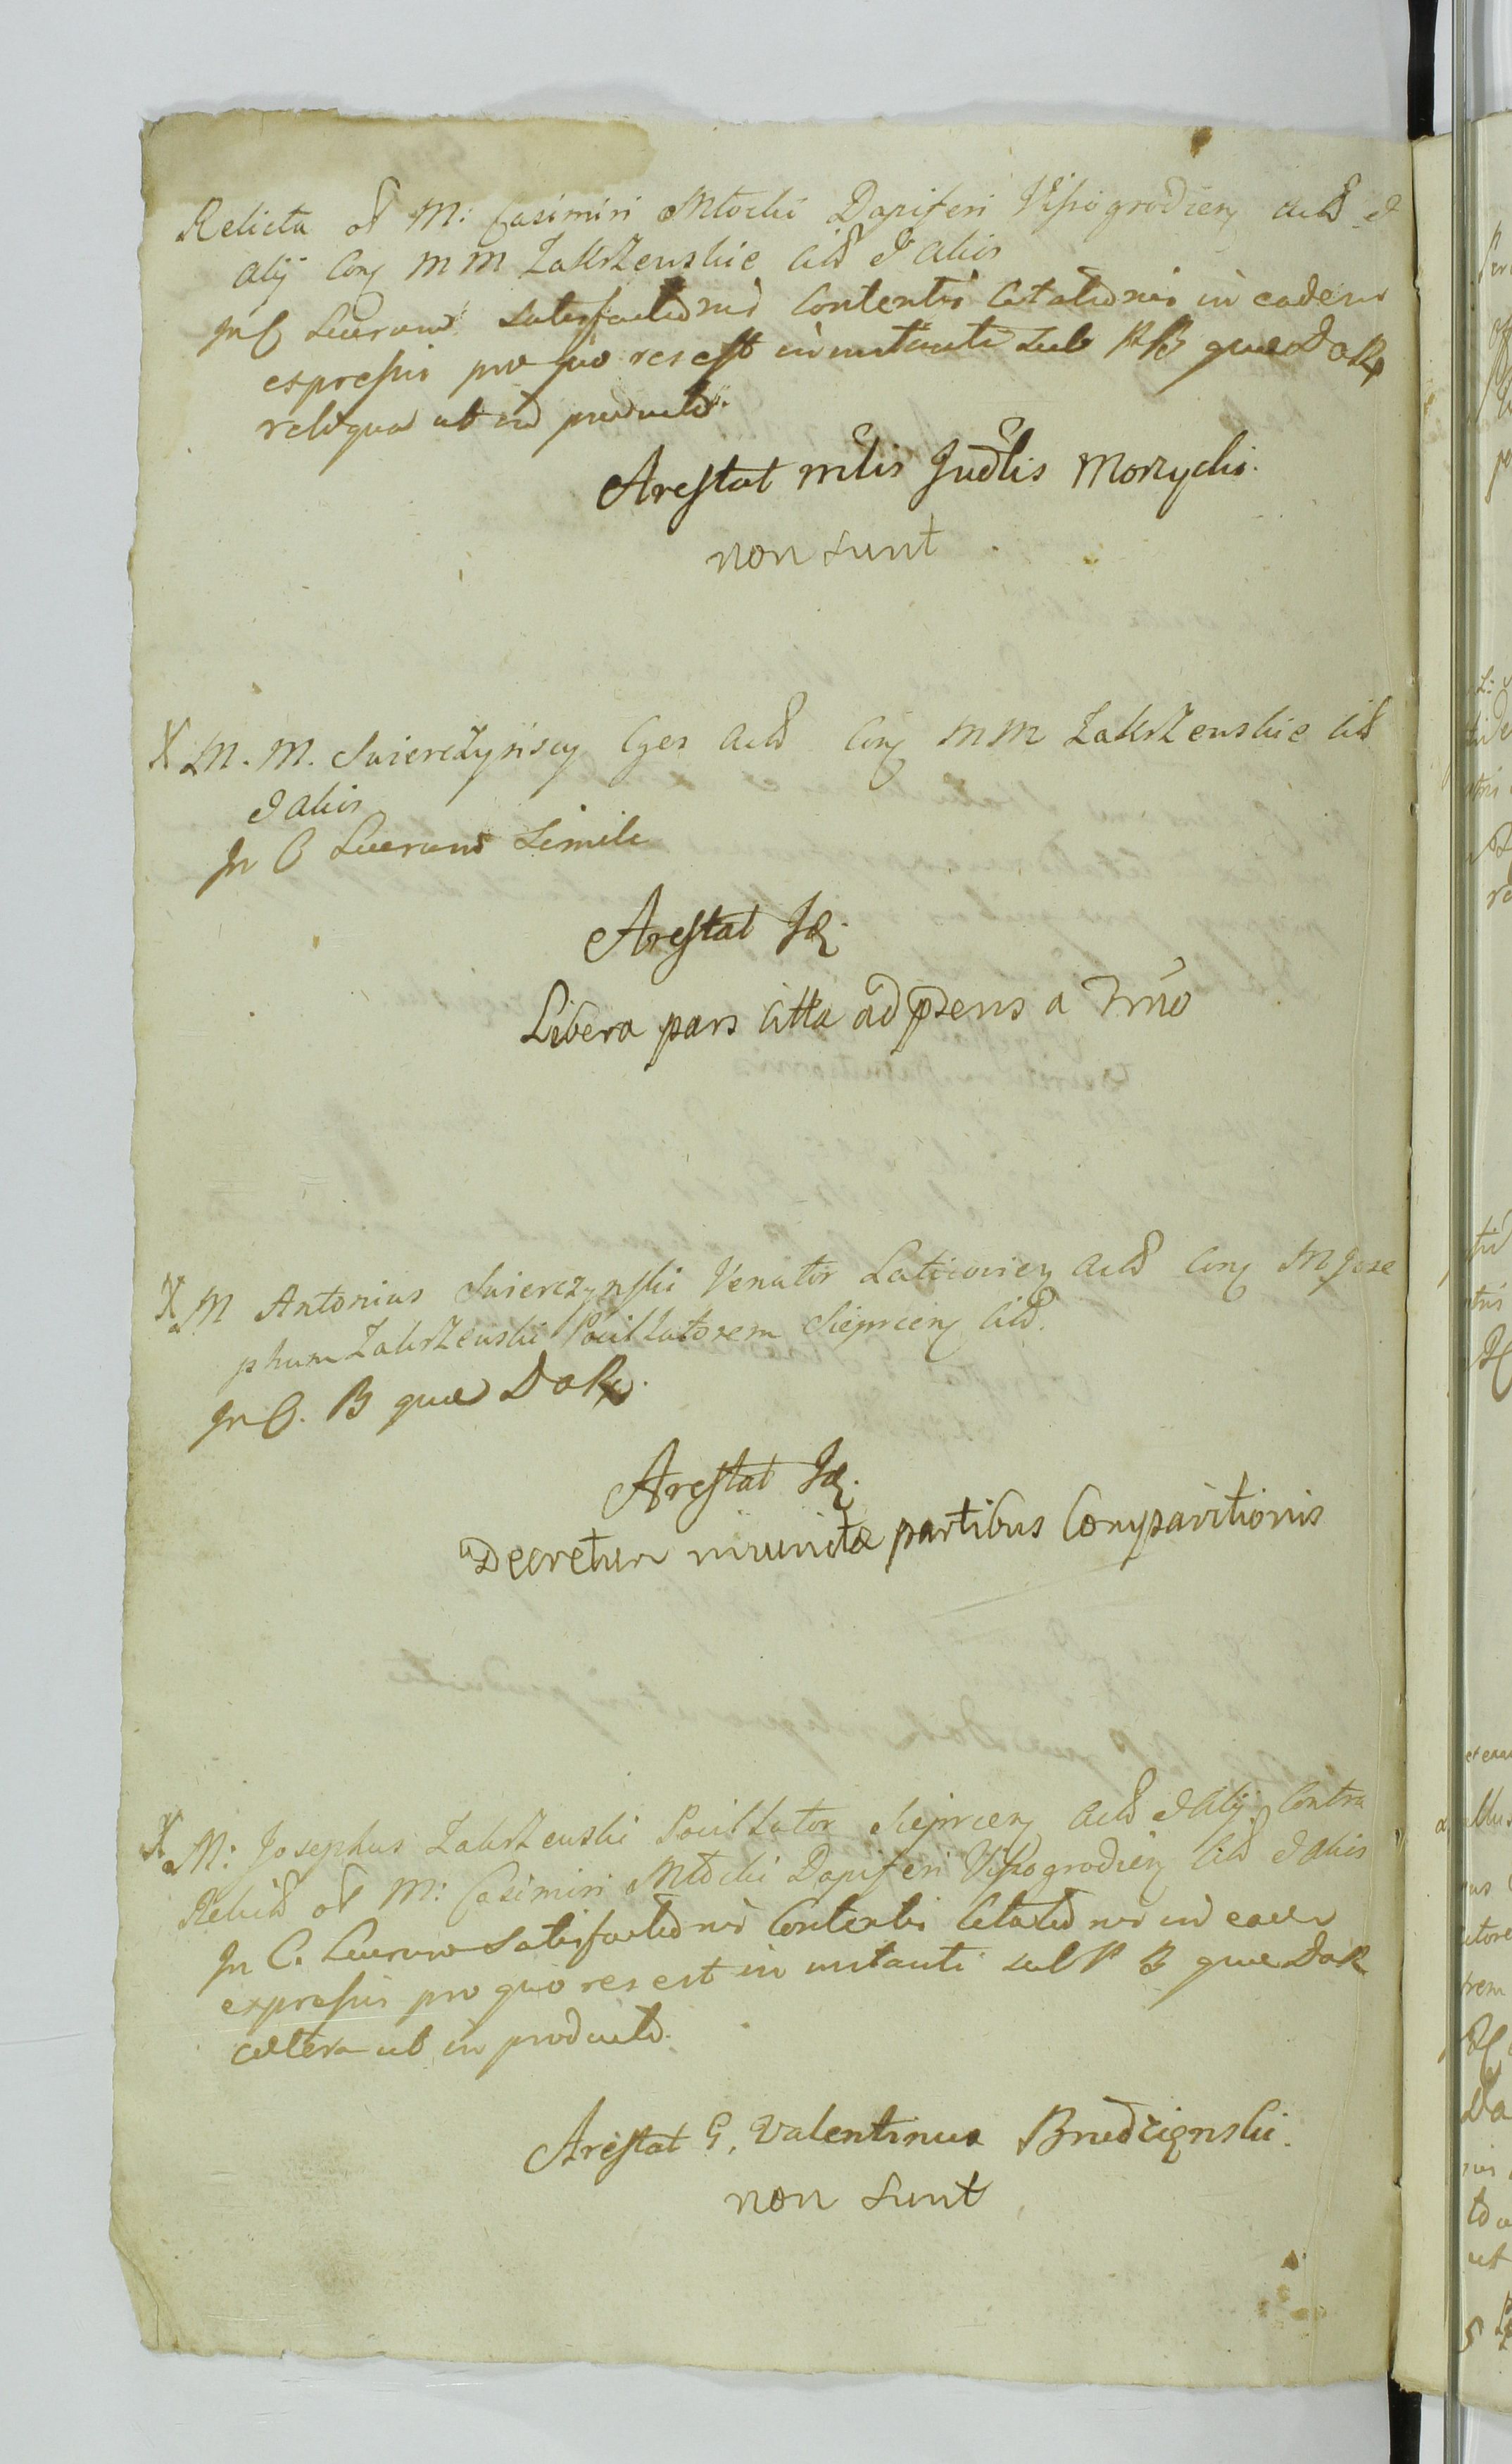 Relicta ol M: Casimiri Młocki Dapiferi Visogrodien Actt et
alij Con MM Zakrzenskie Citt et alios
In C Lucrand satisfactionis Contentis Citationis in eadem
expressis pro quo res est in instanti sub PB quae DaR
reliqua ut in producto.
Arestat mtis Judlis Morzycki.
non sunt
X M. M. Swierczynscy Cges Actt Con MM Zakrzenskie Citt
et alios
In C Lucrand Simile
Arestat Id.
Libera pars Citta ad psens a Tmo
X M Antonius Swierczynski Venator Laticovien Actt Con M Jose
phum Zakrzenski Pocillatorem Sieprcien Citt.
In C. B quae DaR.
Arestat Id.
Decretum iniunctae partibus Comparitionis
X M: Josephus Zakrzenski Pocillator Sieprcien Actt et Alij Contra
Relictt ol M: Casimiri Młocki Dapiferi Visogrodien Citt et Alios
In C. Lucrand Satisfactionis Contentis Citationis in eadem
expressis pro quo res est in instanti sub P B quae DaR
caetera ut in producto.
Arestat G. Valentinus Brudzienski.
non sunt